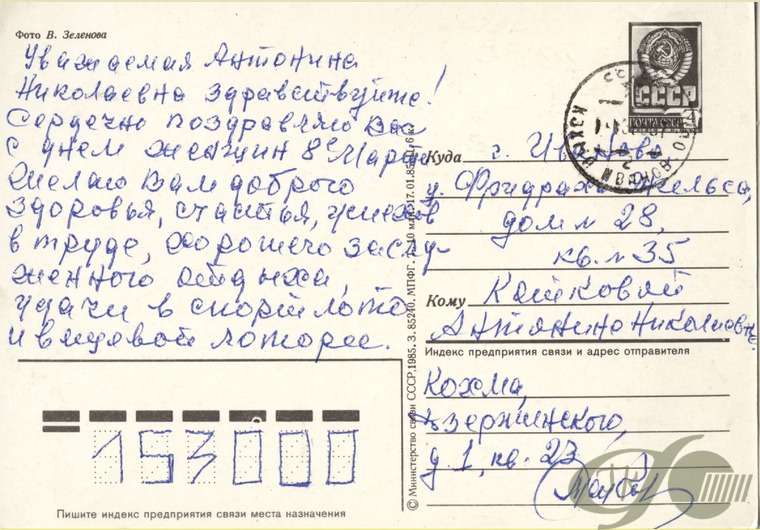 Фото В. Зеленова
Уважаемая Антонина
Николаевна здравствуйте!
Сердечно поздравляю Вас
с днем женщин 8 Марта
Желаю Вам доброго
здоровья, счастья, успехов
в труде, хорошего заслу-
женного отдыха,
удачи в спортлото
и вещевой лотерее.
СССР
ПОЧТА СССР
Куда г. Иваново
у. Фридриха Энгельса,
дом № 28,
кв. № 35
Кому
Антонине Николаевне
Индекс предприятия связи и адрес отправителя
Кохма,
Дзержинского,
д 1, кв. 23
153000
Пишите индекс предприятия связи места назначения
© Министерство связи СССР, 1985. З. 85240. МПФГ.